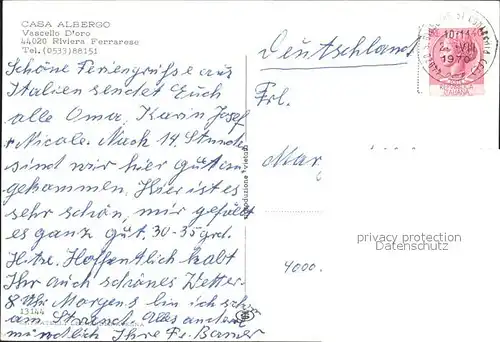 CASA ALBERGO
Vascello D'oro
44020 Riviera Ferrarese
Tel. (0533) 88151
Schöne Feriengrüsse aus
Italien sendet Euch
alle Oma, Karin Josef
+ Nicole. Nach 14 Stunden
sind wir hier gut an
gekommen. Hier ist es
sehr schön, mir gefällt
es ganz gut. 30-35 grd.
Hitze. Hoffentlich habt
Ihr auch schönes Wetter
8 Uhr Morgens bin ich sch
am Strand. Alles andere
mündlich Ihre Fr.
13144
Deutschland
Frl.
4000.
1970
riproduzione vietata
privacy protection
Datenschutz